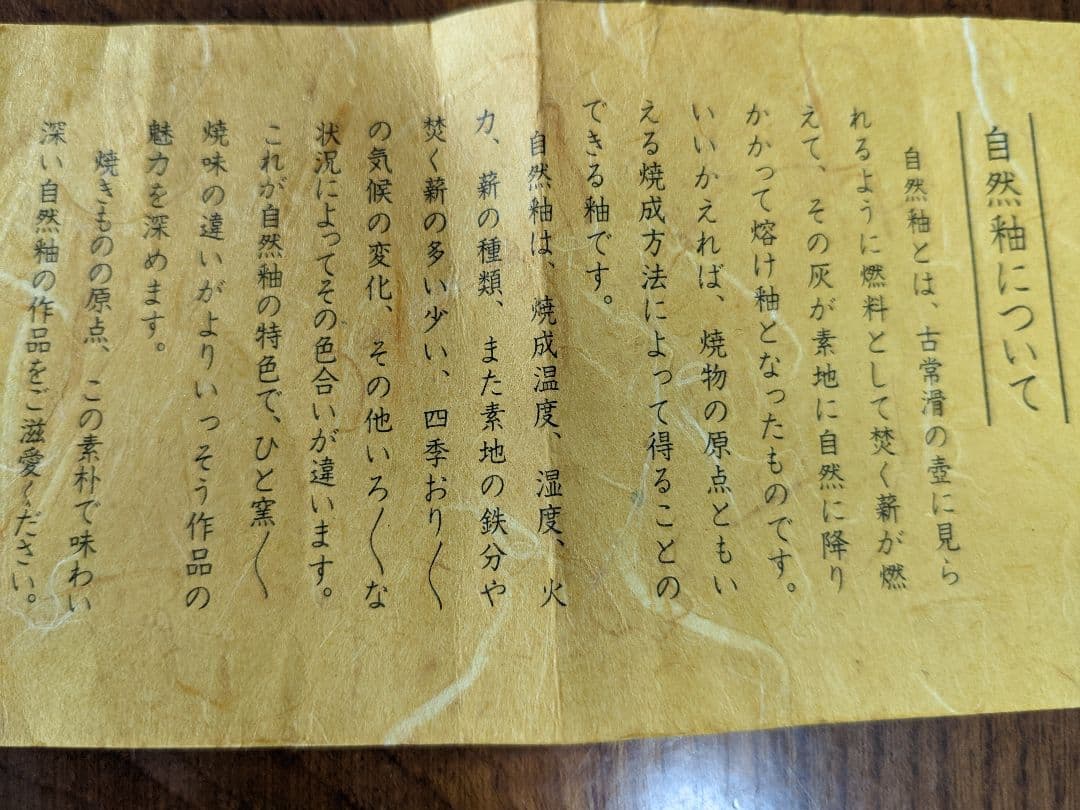 自然釉について
自然釉とは、古常滑の壺に見ら
れるように燃料として焚く薪が燃
えて、その灰が素地に自然に降り
かかって熔け釉となったものです。
いいかえれば、焼物の原点ともい
える焼成方法によって得ることの
できる釉です。
自然釉は、焼成温度、湿度、火
力、薪の種類、また素地の鉄分や
焚く薪の多い少い、四季おり〱
の気候の変化、その他いろ〱な
状況によってその色合いが違います。
これが自然釉の特色で、ひと窯〱
焼味の違いがよりいっそう作品の
魅力を深めます。
焼きものの原点、この素朴で味わい
深い自然釉の作品をご滋愛ください。